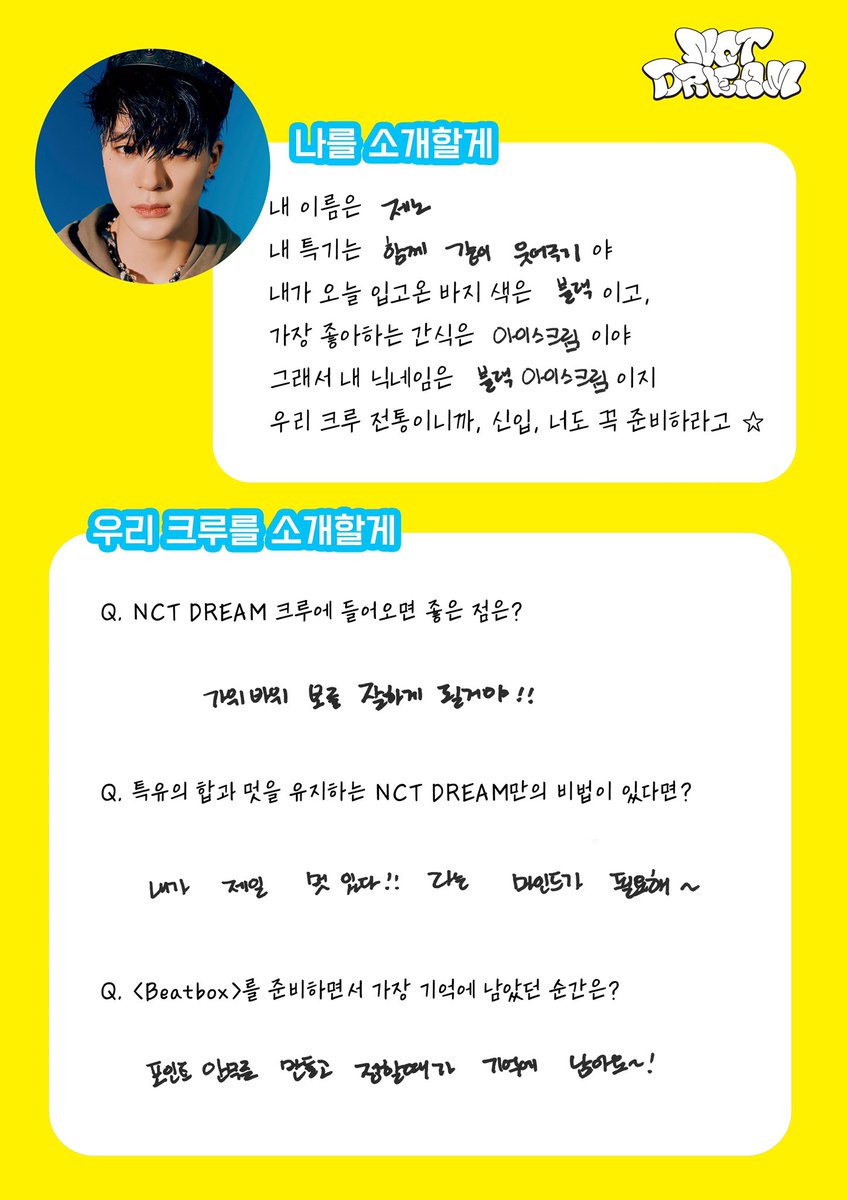 NCT
DREAM
나를 소개할게
내 이름은 제노
내 특기는 함께 같이 웃어주기 야
내가 오늘 입고온 바지 색은 블랙 이고,
가장 좋아하는 간식은 아이스크림 이야
그래서 내 닉네임은 블랙 아이스크림 이지
우리 크루 전통이니까, 신입, 너도 꼭 준비하라고 ☆
우리 크루를 소개할게
Q. NCT DREAM 크루에 들어오면 좋은 점은?
가위바위 보를 잘하게 될거야!!
Q. 특유의 합과 멋을 유지하는 NCT DREAM만의 비법이 있다면?
내가 제일 멋 있다!! 라는 마인드가 필요해~
Q. <Beatbox>를 준비하면서 가장 기억에 남았던 순간은?
포인트 안무를 만들고 정할때가 기억에 남아요~!